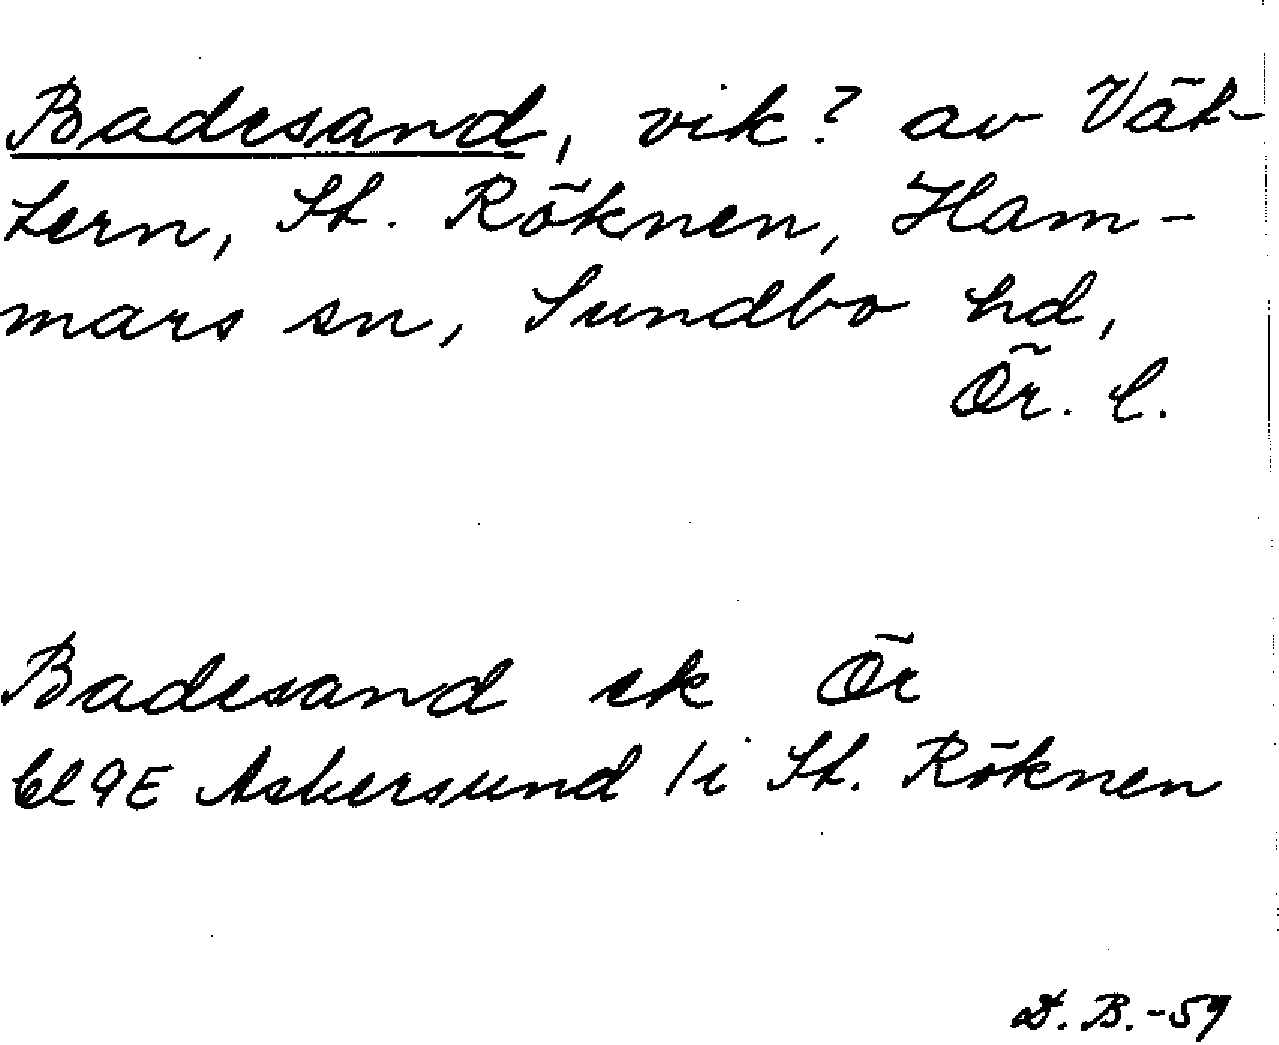 Badesand, vik? av Vät-
tern, St. Röknen, Ham-
mars sn, Sundbo hd,
Ör. l.
Badesand ek Ör
bl 9E Askersund /i St. Röknen
D. B. -59